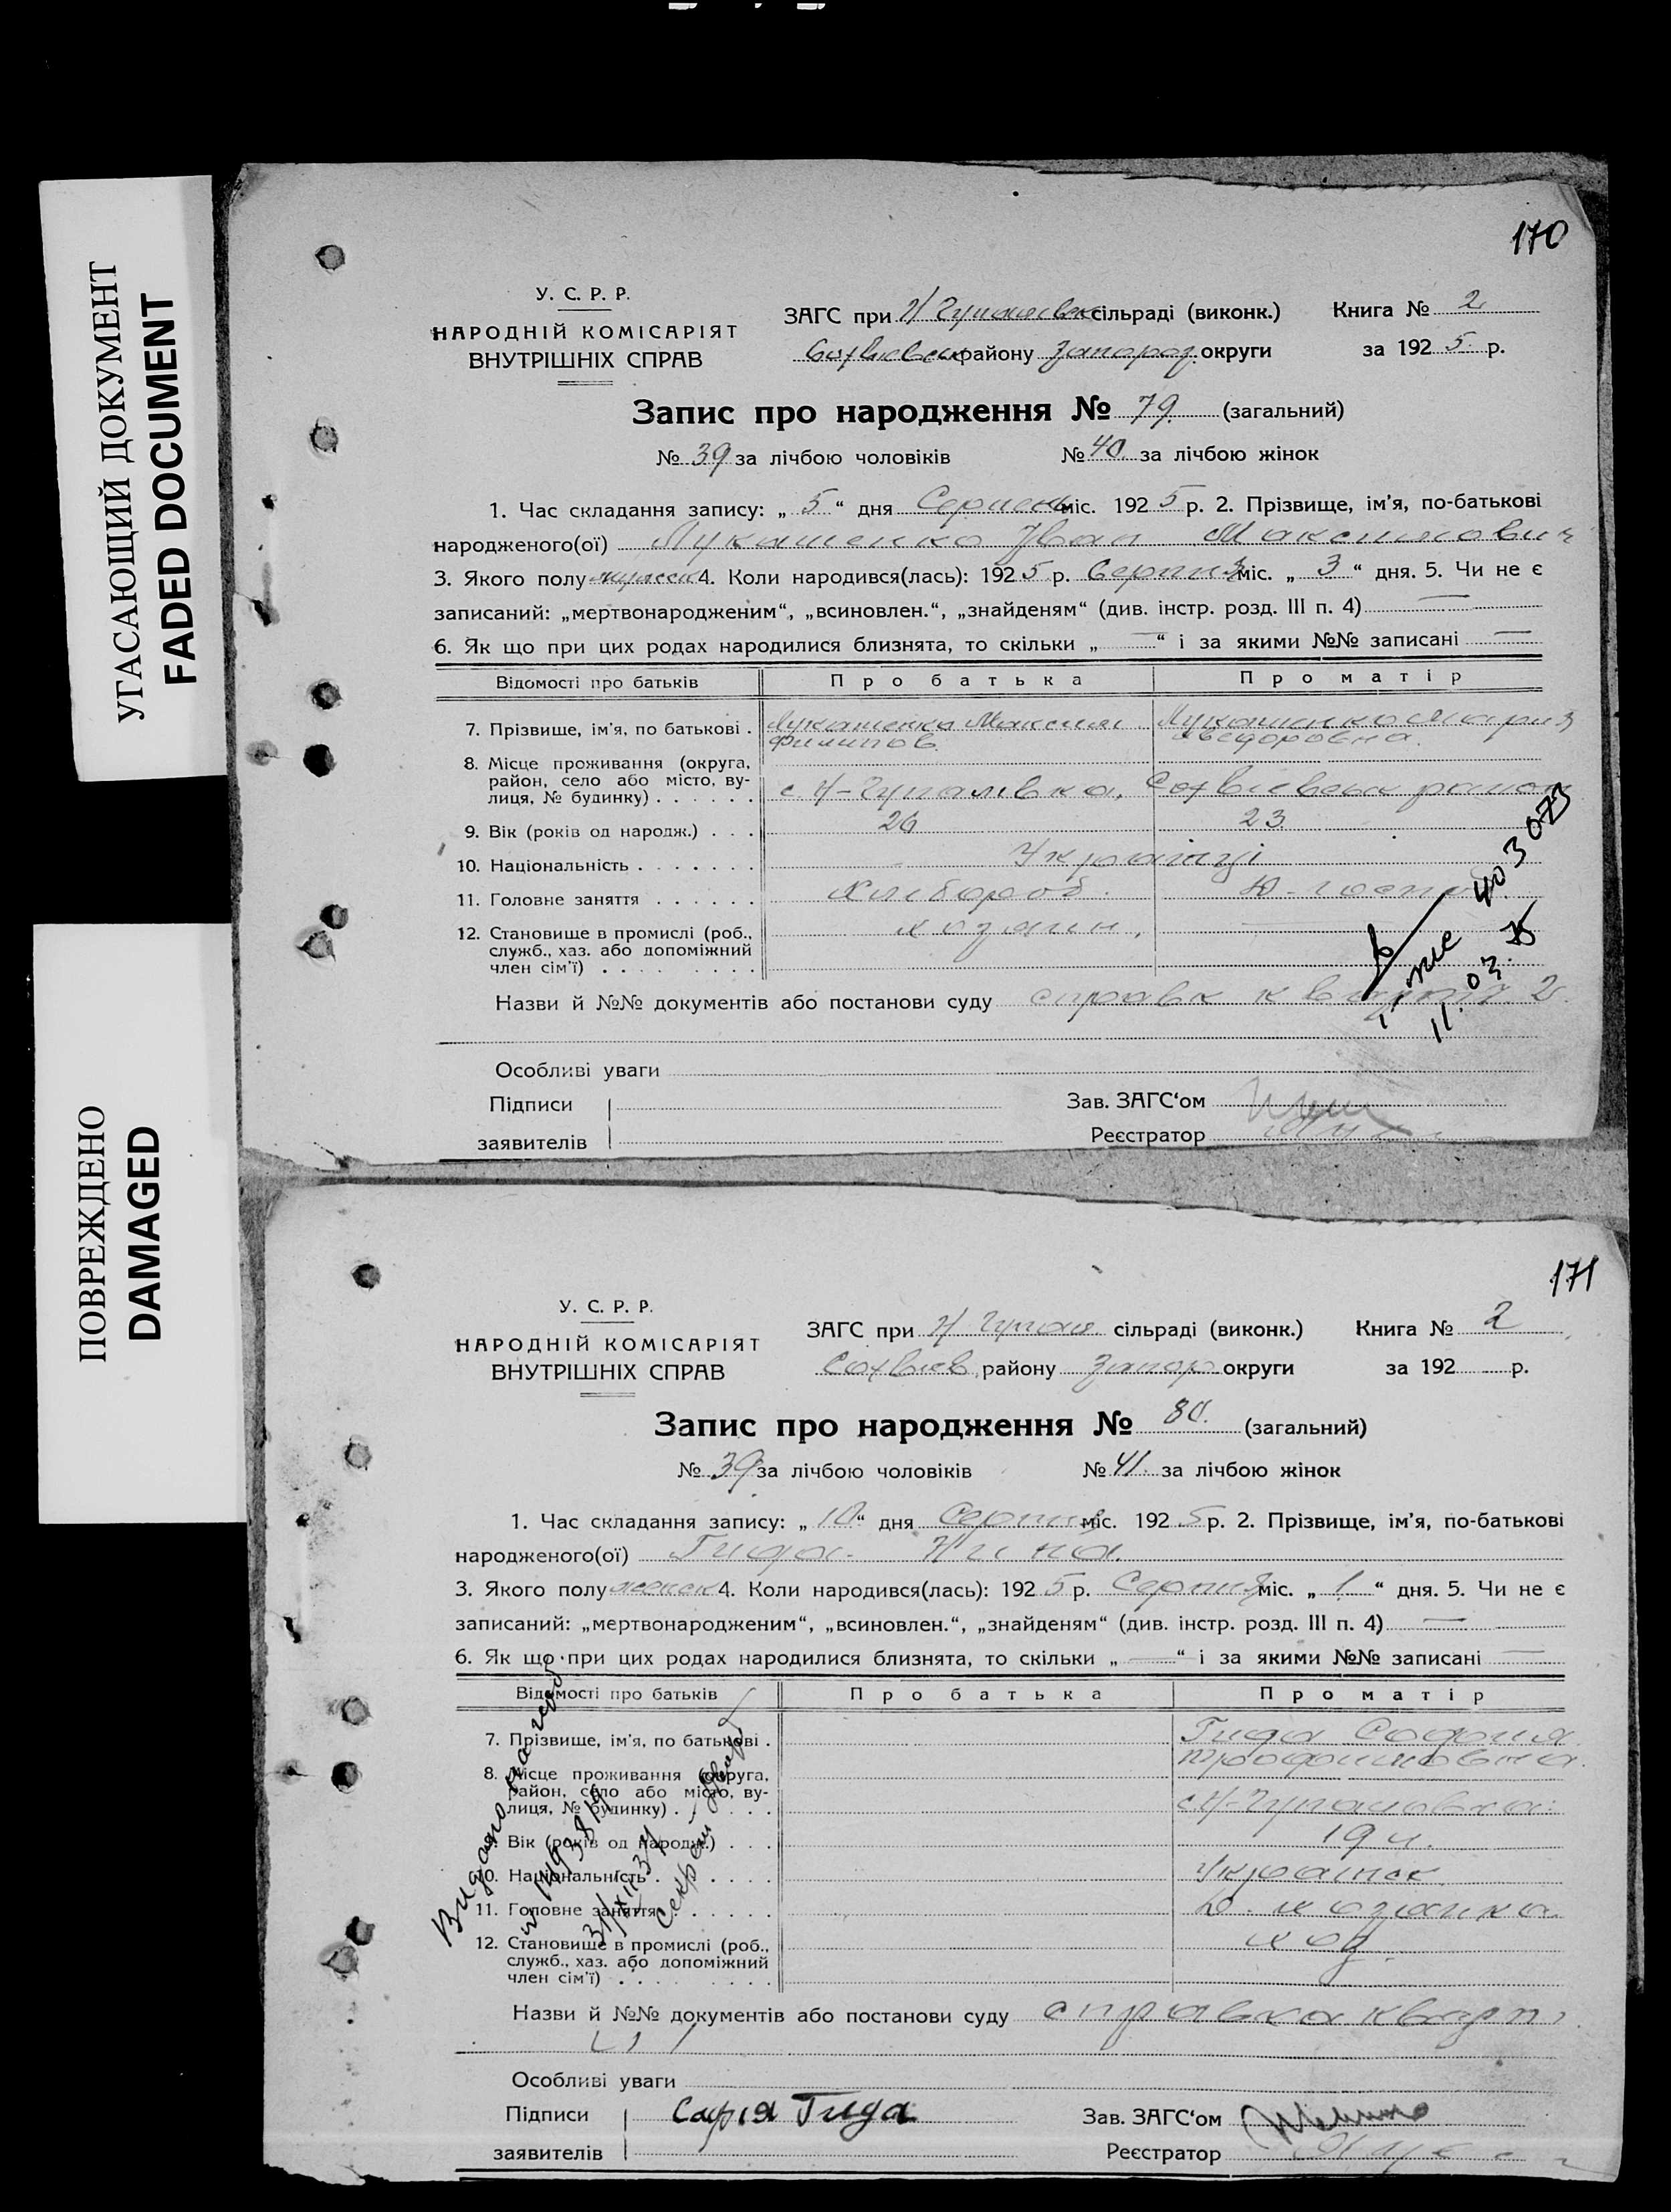 УГАСАЮЩИЙ ДОКУМЕНТ
FADED DOCUMENT
ПОВРЕЖДЕНО
DAMAGED
170
У. С. Р. Р.
НАРОДНІЙ КОМІСАРІЯТ
ВНУТРІШНІХ СПРАВ
ЗАГС при сільраді (виконк.) Книга № 2
району Запорoз. округи за 192 5 р.
Запис про народження № 79. (загальний)
№ 39 за лічбою чоловіків № 40 за лічбою жінок
1. Час складання запису: „ 5 “ дня Серпень міс. 192 5 р. 2. Прізвище, ім'я, по-батькові
народженого(ої) Лукашенко Іван Максимович
3. Якого полу 4. Коли народився(лась): 192 5 р. Серпня міс. „ 3 “ дня. 5. Чи не є
записаний: „мертвонародженим“, „всиновлен.“, „знайденям“ (див. інстр. розд. III п. 4) —
6. Як що при цих родах народилися близнята, то скільки „ — “ і за якими №№ записані —
Відомості про батьків Про батька Про матір
7. Прізвище, ім'я, по батькові . Лукашенко Максим Лукашенко Мария
Филипов. Хведоровна.
8. Місце проживання (округа,
район, село або місто, ву-
лиця, № будинку) . . . . . . с. Н-Гупалівка, району
9. Вік (років од народж.) . . . 26 23
10. Національність . . . . . . . Українці
11. Головне заняття . . . . . . Хлібороб.
12. Становище в промислі (роб., хозяин,
служб., хаз. або допоміжний
член сім'ї) . . . . . . . . .
403 073
11. 03. 75
Назви й №№ документів або постанови суду справк
Особливі уваги
Підписи Зав. ЗАГС'ом
заявителів Реєстратор
171
У. С. Р. Р.
НАРОДНІЙ КОМІСАРІЯТ
ВНУТРІШНІХ СПРАВ
ЗАГС при Н Гупал сільраді (виконк.) Книга № 2
району Запор. округи за 192 р.
Запис про народження № 80. (загальний)
№ 39 за лічбою чоловіків № 41. за лічбою жінок
1. Час складання запису: „ 10 “ дня Серпня міс. 192 5 р. 2. Прізвище, ім'я, по-батькові
народженого(ої) Гида Нина.
3. Якого полу женск 4. Коли народився(лась): 192 5 р. Серпня міс. „ 1 “ дня. 5. Чи не є
записаний: „мертвонародженим“, „всиновлен.“, „знайденям“ (див. інстр. розд. III п. 4) —
6. Як що при цих родах народилися близнята, то скільки „ — “ і за якими №№ записані —
Відомості про батьків Про батька Про матір
7. Прізвище, ім'я, по батькові . Гида София
Трофимовна.
8. Місце проживання (округа,
район, село або місто, ву-
лиця, № будинку) . . . . . . с. Н-Гупаловка.
9. Вік (років од народж.) . . . 19 л.
10. Національність . . . . . . . Українск.
11. Головне заняття . . . . . . Д. хозяйка
12. Становище в промислі (роб., хоз.
служб., хаз. або допоміжний
член сім'ї) . . . . . . . . .
Видано
Назви й №№ документів або постанови суду справка
Особливі уваги
Підписи Софія Гида Зав. ЗАГС'ом
заявителів Реєстратор